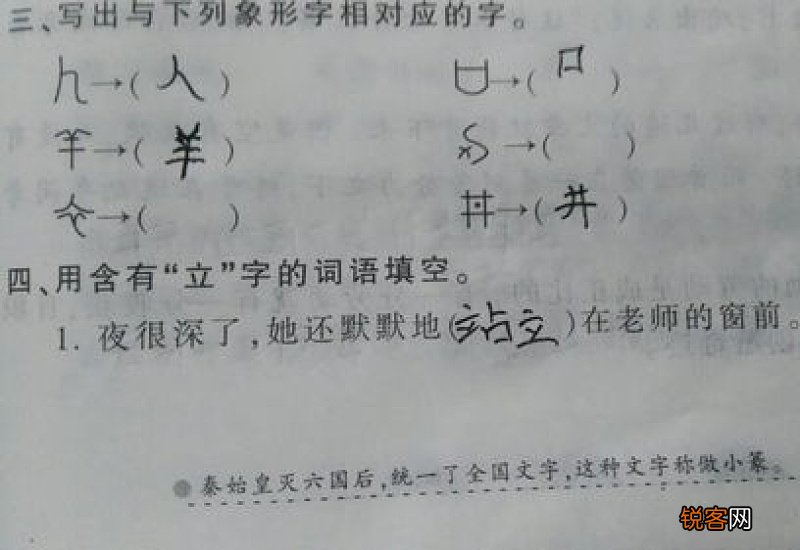 三、写出与下列象形字相对应的字。
→(人) →(口)
→(羊) →( )
→( ) →(井)
四、用含有“立”字的词语填空。
1. 夜很深了,她还默默地(站立)在老师的窗前。
秦始皇灭六国后,统一了全国文字,这种文字称做小篆。
锐客网